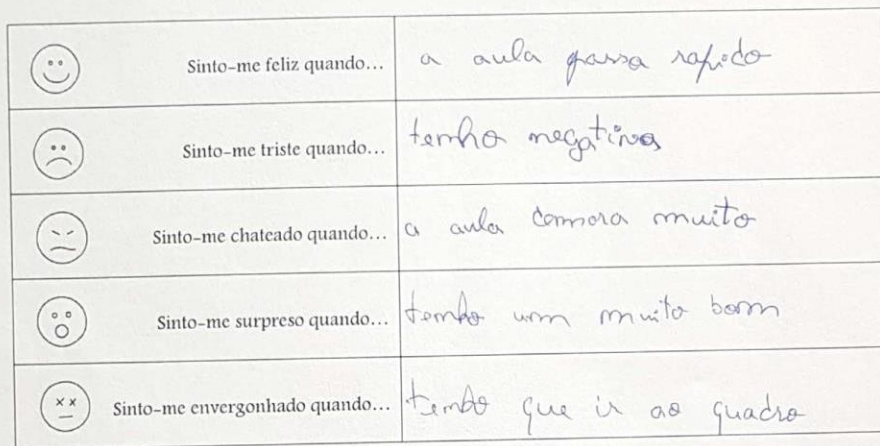 Sinto-me feliz quando... a aula passa rapido
Sinto-me triste quando... tenho negativa
Sinto-me chateado quando... a aula demora muito
Sinto-me surpreso quando... tenho um muito bom
Sinto-me envergonhado quando... tenho que ir ao quadro